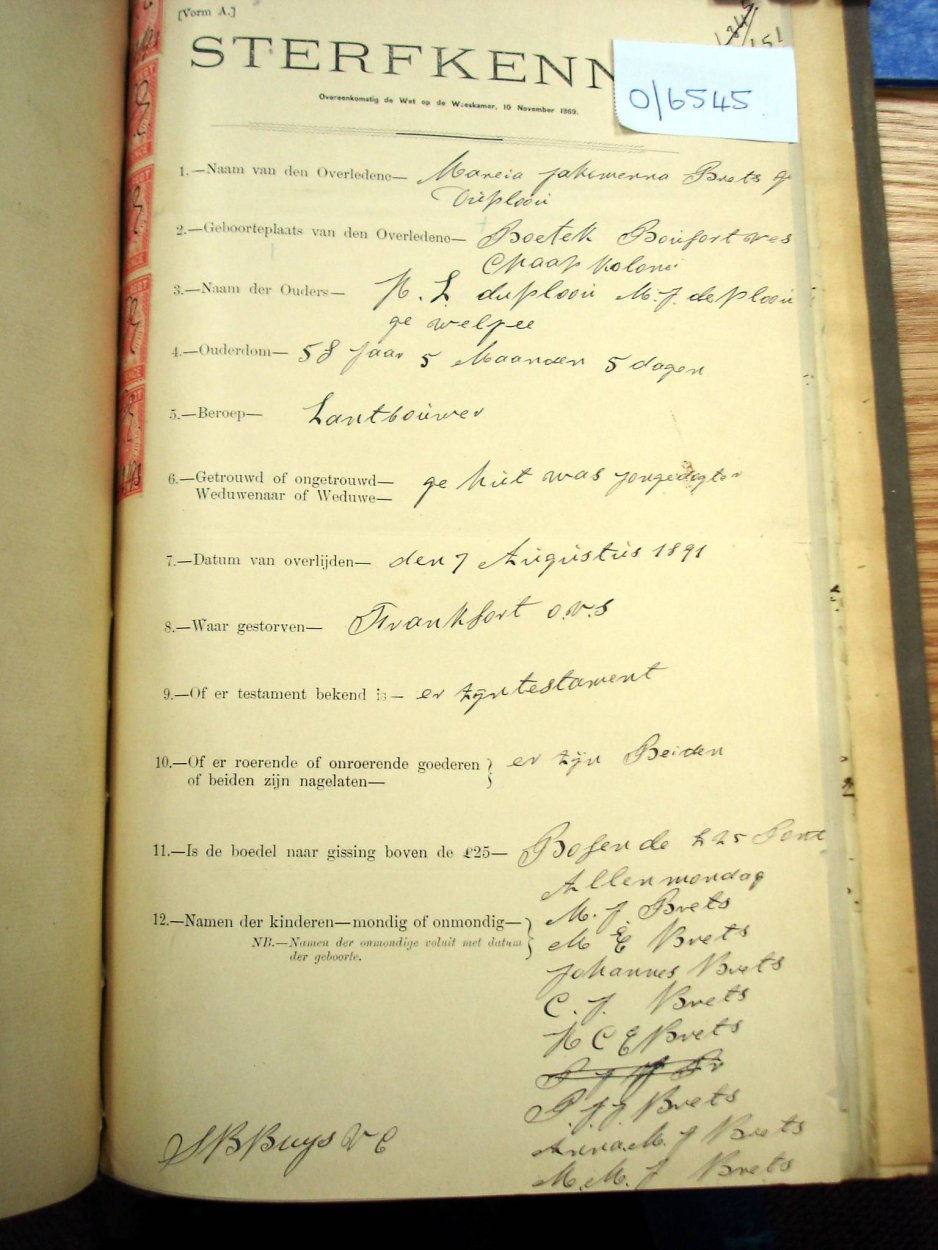 [Vorm A.]
151
STERFKENN
O/6545
Overeenkomstig de Wet op de Weeskamer, 10 November 1869.
1.—Naam van den Overledene— Mareia Jakemenna Brets ge
Dúplooi
2.—Geboorteplaats van den Overledene— Boetek Boúfort wes
Chaap kolonie
3.—Naam der Ouders— H. L. dúplooi M. J. deplooi
ge welpee
4.—Ouderdom— 58 jaar 5 Maanden 5 dagen
5.—Beroep— Lantboúwer
6.—Getrouwd of ongetrouwd—
Weduwenaar of Weduwe— ge hút was jongedogter
7.—Datum van overlijden— den 7 Aúgústús 1891
8.—Waar gestorven— Frankfort o.v.s
9.—Of er testament bekend is— er zyn testament
10.—Of er roerende of onroerende goederen } er zijn Beiden
of beiden zijn nagelaten—
11.—Is de boedel naar gissing boven de £25— Bofen de £25 Pont
Allen mondag
12.—Namen der kinderen—mondig of onmondig— M. J. Brets
NB.—Namen der onmondige voluit met datum M E Brets
der geboorte.
Johannes Brets
C. J. Brets
H C E Brets
P. J. J. Brets
Anna M. J Brets
M. M. J Brets
S B Buys V C